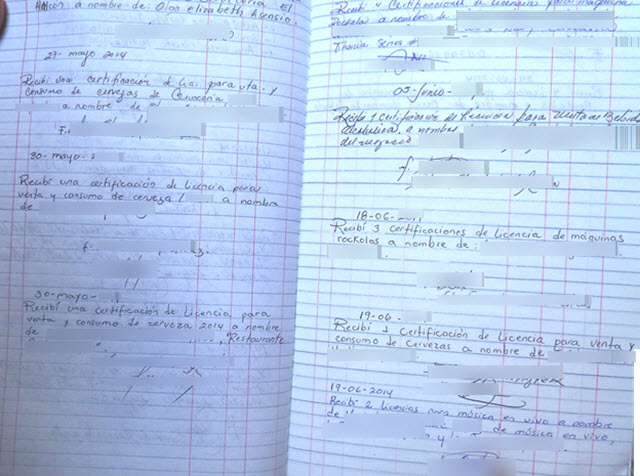 a nombre de: Olga Elizabeth Asensio.
27- mayo 2014
Recibi una certificación de Lic. para vta. y
consumo de cervezas de Cervecería
a nombre de
F.
30-mayo-
Recibí una certificación de Licencia para
venta y consumo de cerveza a nombre
de
f.
30-mayo-
Recibí una certificación de Licencia para
venta y consumo de cerveza 2014 a nombre
de Restaurante
Recibi 4 Certificaciones de Licencia para máquina
rockola a nombre de
03-Junio-
Recibi 1 Certificación de Licencia para Venta de Bebida
alcoholica, a nombre
del negocio
f.
18-06-
Recibí 3 certificaciones de licencia de máquinas
rockolas a nombre de:
19-06-
Recibí 1 Certificación de Licencia para venta y
consumo de Cervezas a nombre de
19-06-2014
Recibí 2 licencias para música en vivo a nombre
de de música en vivo,
y